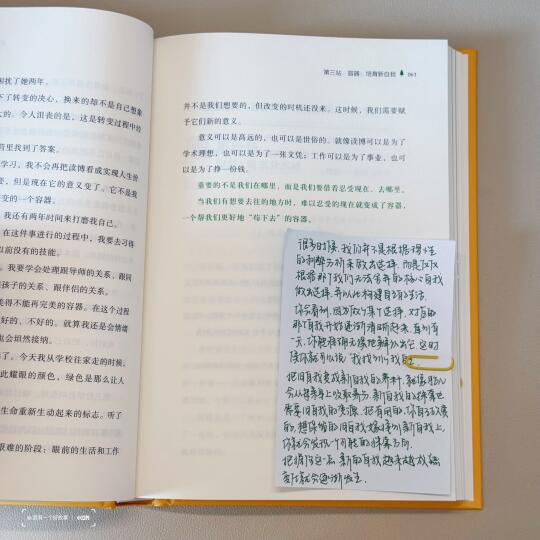 困扰了她两年。
下了转变的决心，换来的却不是自己想象
大的。令人沮丧的是，这是转变过程中经
营里找到了答案。
学习，我不会再把读博看成实现人生价
要，但是现在它的意义变了。它不是我
变的一个容器。
我还有两年时间来打磨我自己。
在这件事进行的过程中，我要去习得
以前没有的技能。
我要学会处理跟导师的关系、跟同
孩子的关系、跟伴侣的关系。
美得不能再完美的容器。在这个过程
好的、不好的。就算我还是会情绪
也会坦然接纳。
了。今天我从学校往家走的时候，
此耀眼的颜色，绿色是那么让人
生命重新生动起来的标志。听了
艰难的阶段：眼前的生活和工作
第三站 容器：培育新自我 163
并不是我们想要的，但改变的时机还没来。这时候，我们需要赋
予它们新的意义。
意义可以是高远的，也可以是世俗的。就像读博可以是为了
学术理想，也可以是为了一张文凭；工作可以是为了事业，也可
以是为了挣一份钱。
重要的不是我们在哪里，而是我们要借着忍受现在，去哪里。
当我们有想要去往的地方时，难以忍受的现在就变成了容器，
一个帮我们更好地“苟下去”的容器。
很多时候，我们并不是根据理性
的利弊分析来做出选择，而是反反
根据那个我们无法舍弃的核心自我
做出选择，并以此构建自己的生活。
你会看到，因为做了某个选择，对应的
那个自我开始逐渐清晰起来。直到有
一天，你能准确无误地辨认出它。这时
候你就可以说“我找到了我自己
把旧自我变成新自我的养料，就像婴儿
会从母亲身上吸取养分，新自我的探索也
需要旧自我的资源。把有用的、你喜欢
的、想保留的旧自我嫁接到新自我上，
你就会发现一个可能的探索方向。
新的自我越来越成熟
变化就会逐渐发生。
有一个好故事
小红书